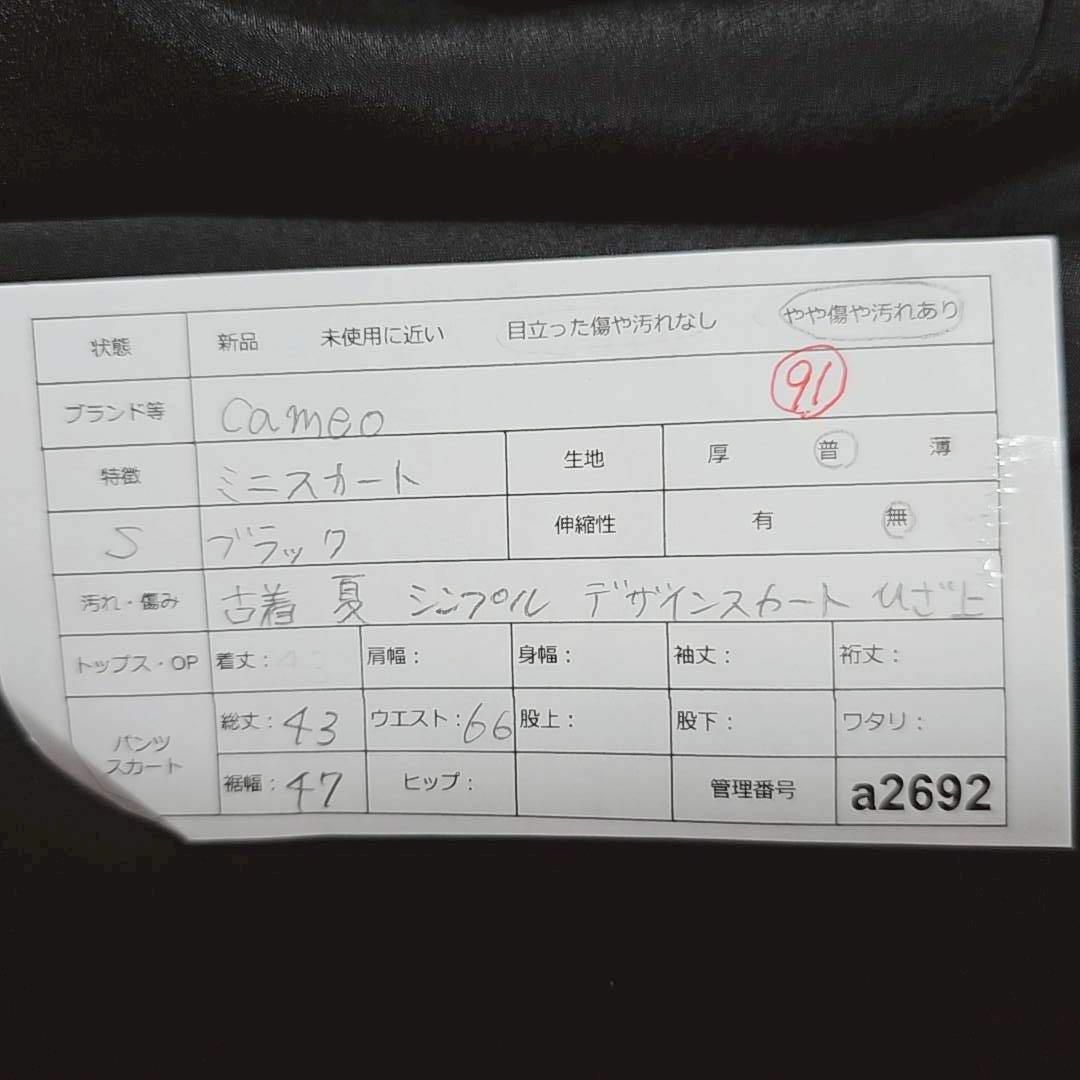 状態 新品 未使用に近い 目立った傷や汚れなし やや傷や汚れあり
ブランド等 cameo 91
特徴 ミニスカート 生地 厚 普 薄
S ブラック 伸縮性 有 無
汚れ・傷み 古着 夏 シンプル デザインスカート ひざ上
トップス・OP 着丈: 肩幅: 身幅: 袖丈: 裄丈:
パンツ スカート 総丈:43 ウエスト:66 股上: 股下: ワタリ:
裾幅:47 ヒップ: 管理番号 a2692